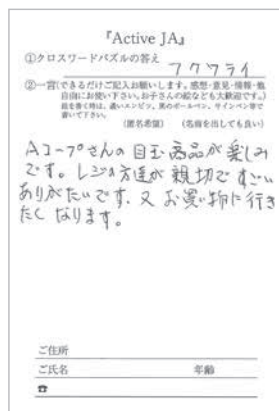 『Active JA』
①クロスワードパズルの答え
フクワライ
②一言(できるだけご記入お願いします。感想・意見・情報・他
自由にお使い下さい。お子さんの絵なども大歓迎です。)
絵を書く時は、濃いエンピツ、黒のボールペン、サインペン等で
書いて下さい。
(匿名希望) (名前を出しても良い)
Aコープさんの目玉商品が楽しみ
です。レジの方達が親切ですごい
ありがたいです。又お買い物に行き
たくなります。
ご住所
ご氏名 年齢
☎